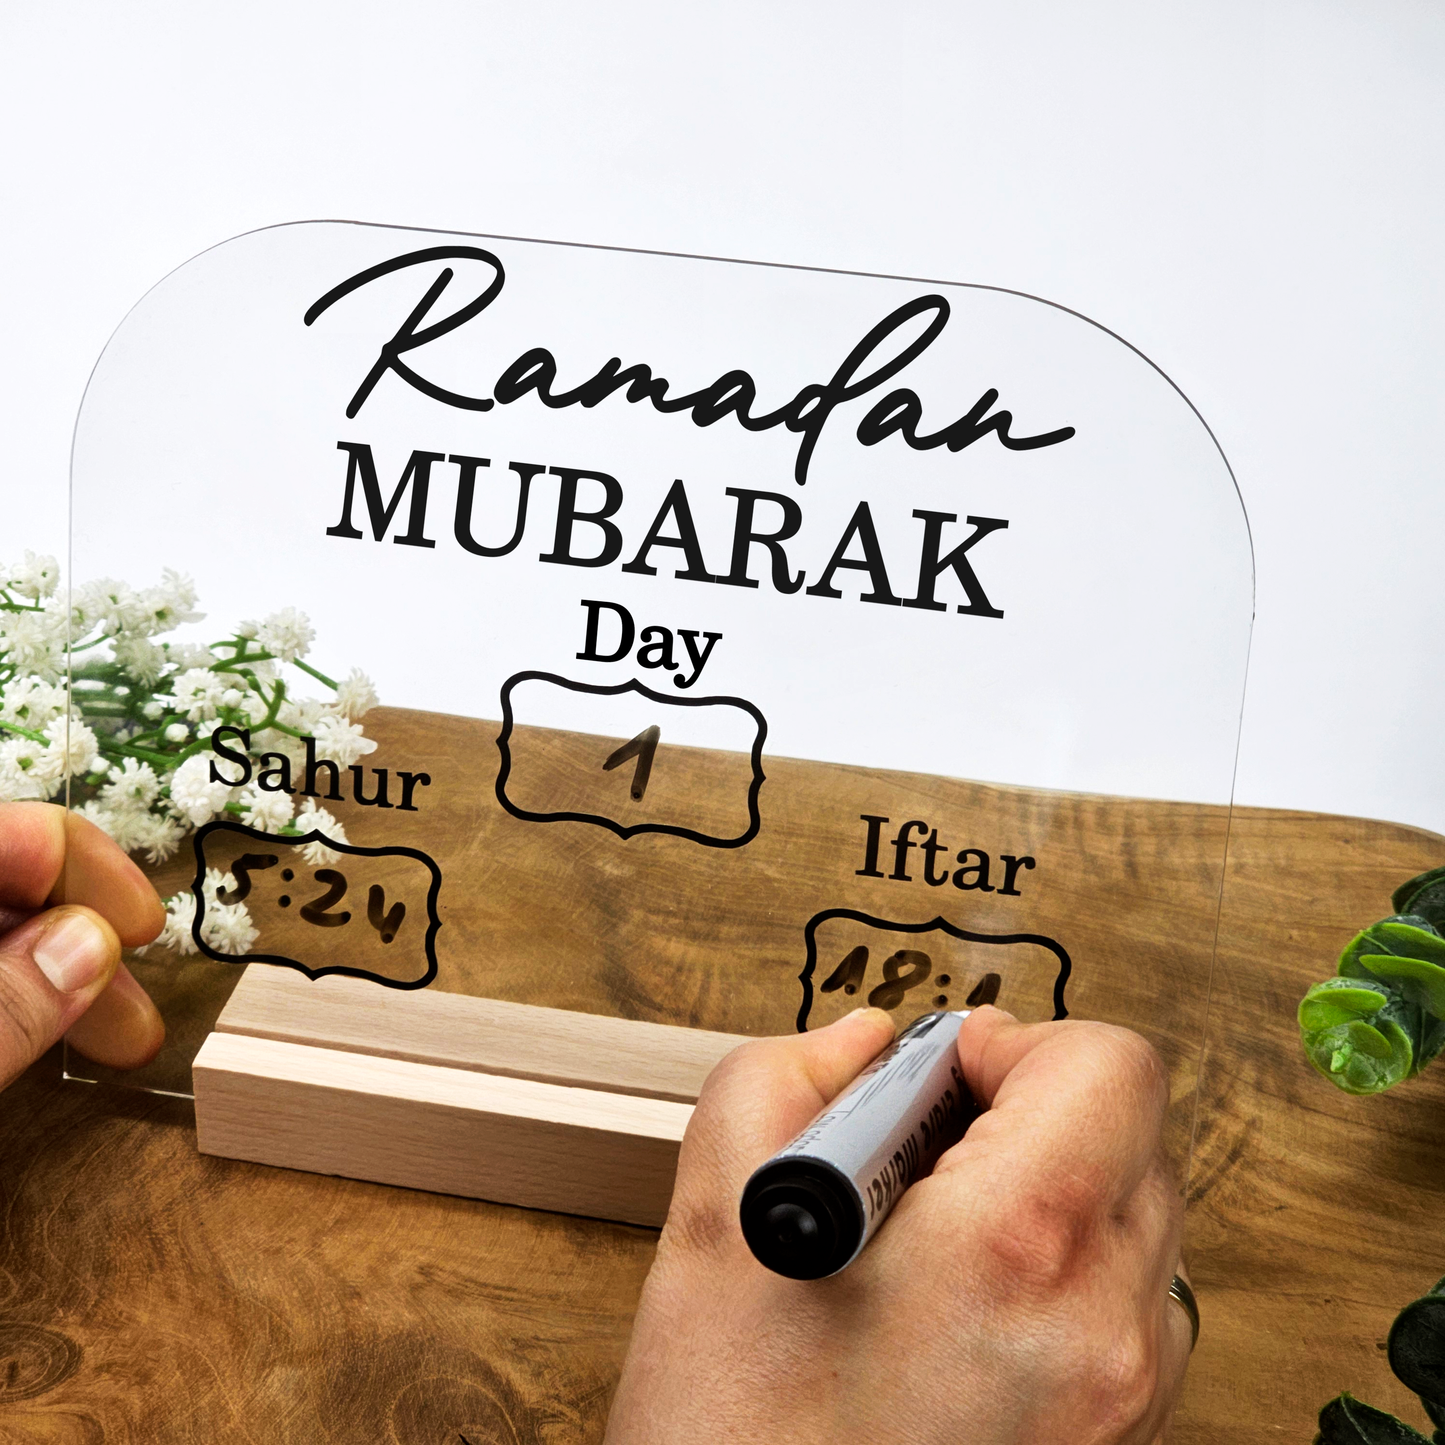 Ramadan
MUBARAK
Day
1
Sahur
5:24
Iftar
18:1
marker